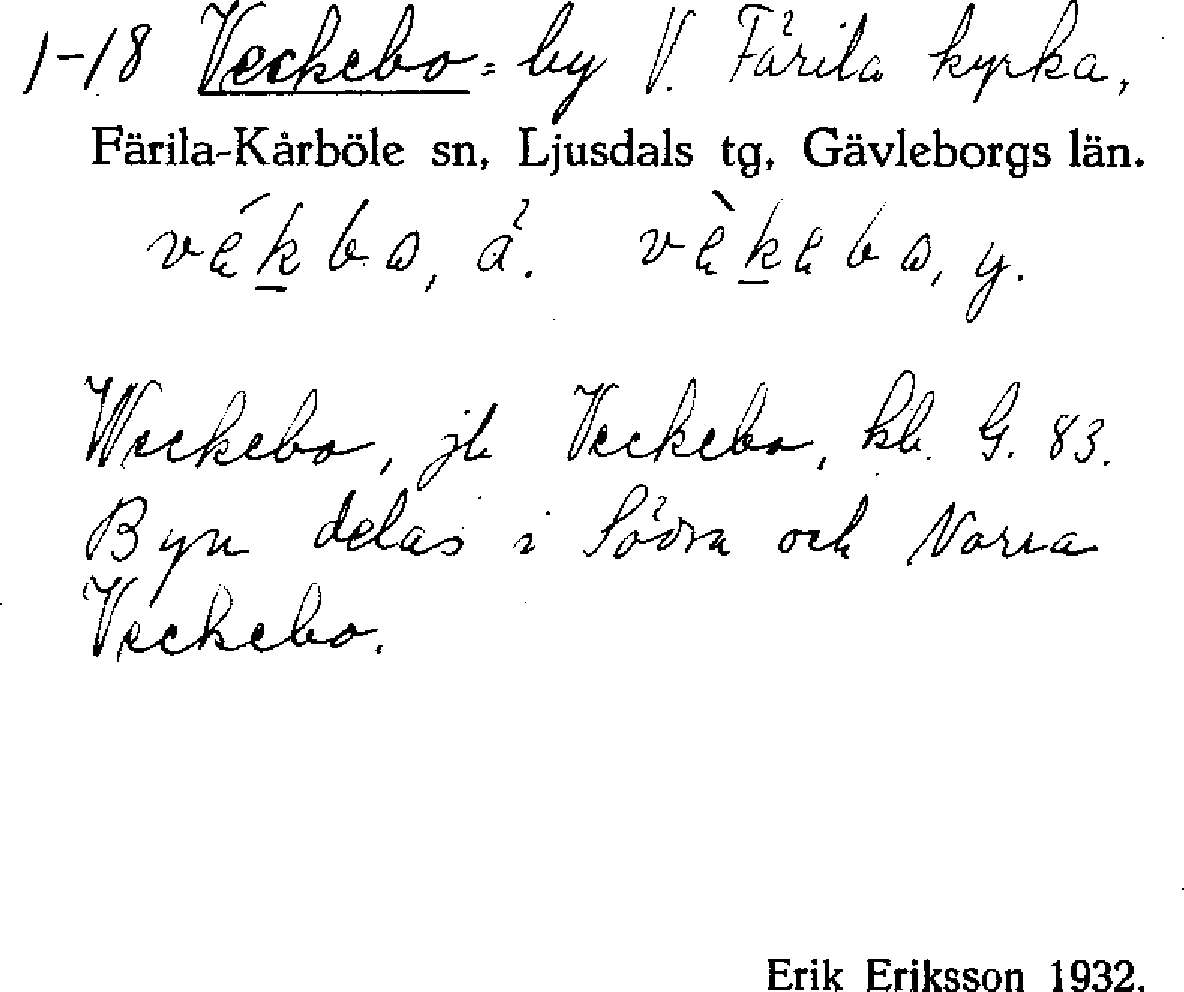 1-18 Veckebo: by V. Färila kyrka,
Färila-Kårböle sn, Ljusdals tg, Gävleborgs län.
vékbo, ä. vèkebo, y.
Weckebo, jb Veckebo, kb. G. 83.
Byn delas i Södra och Norra
Veckebo.
Erik Eriksson 1932.